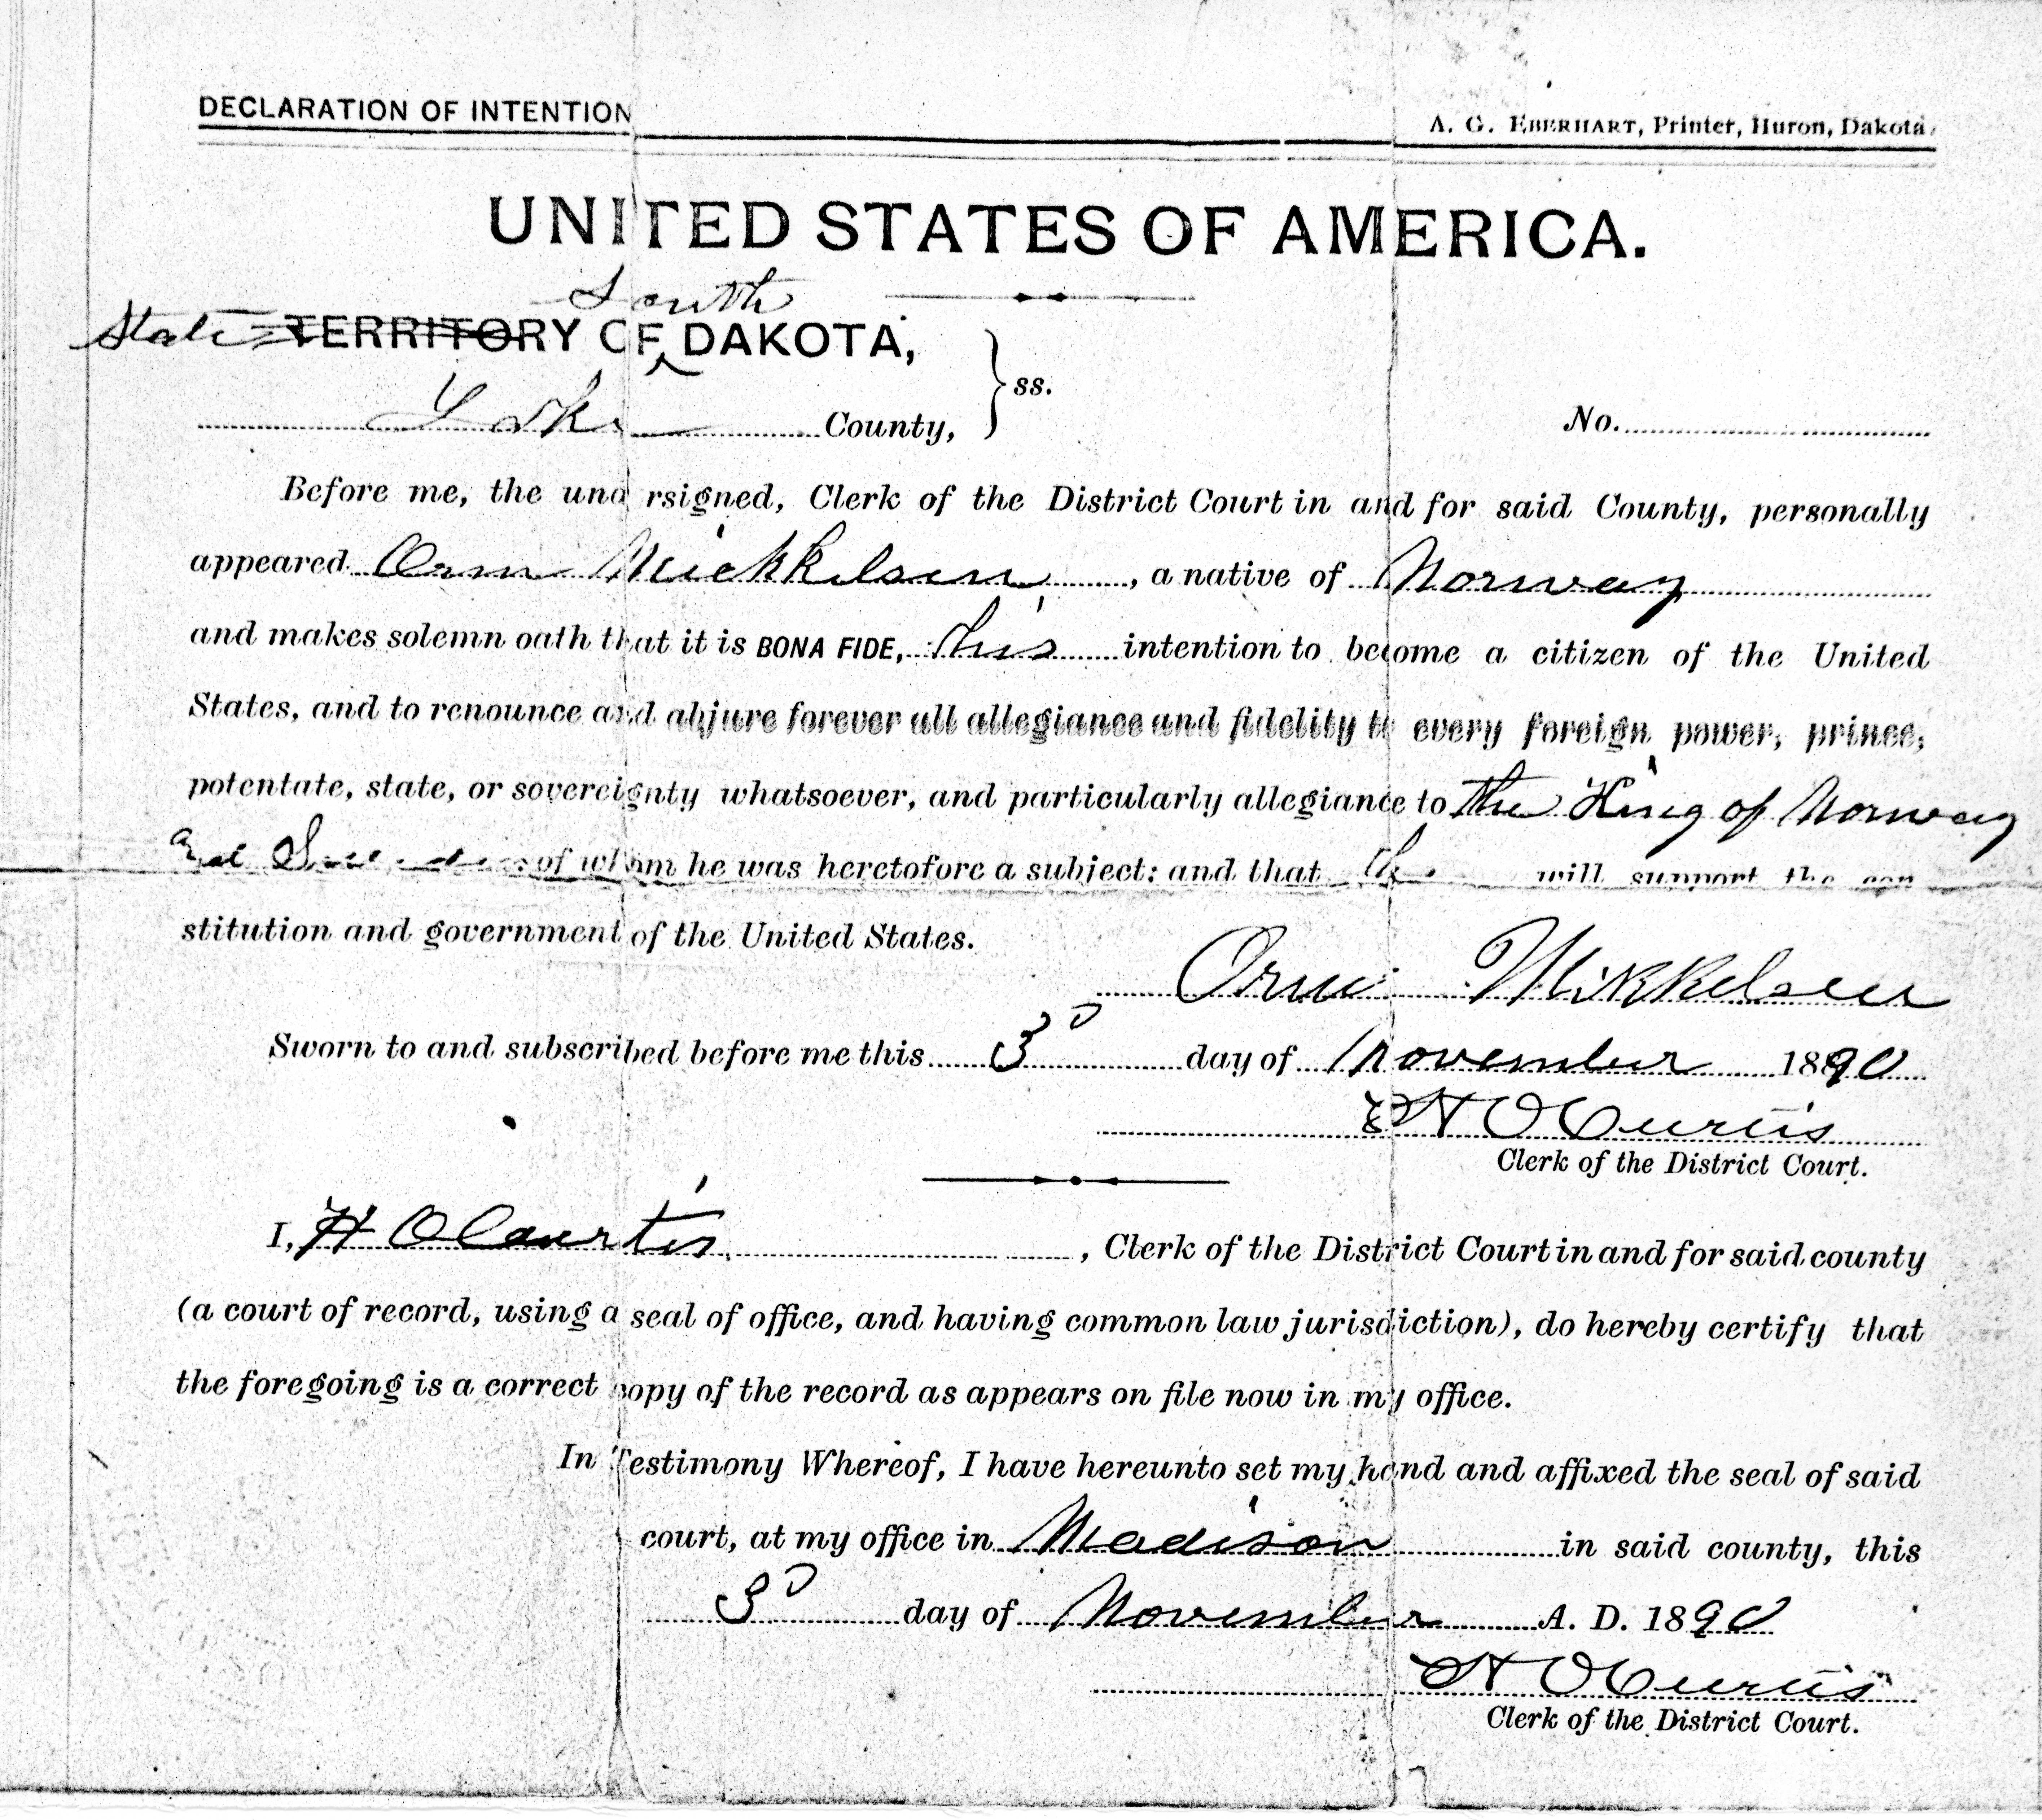 DECLARATION OF INTENTION
A. G. EBERHART, Printer, Huron, Dakota.
UNITED STATES OF AMERICA.
South
State TERRITORY OF DAKOTA,
Lake County, ss. No.
Before me, the undersigned, Clerk of the District Court in and for said County, personally
appeared Orm Mickkelsen, a native of Norway
and makes solemn oath that it is BONA FIDE, his intention to become a citizen of the United
States, and to renounce and abjure forever all allegiance and fidelity to every foreign power, prince,
potentate, state, or sovereignty whatsoever, and particularly allegiance to the King of Norway
and Sweden of whom he was heretofore a subject: and that he will support the con
stitution and government of the United States.
Orm Mikkelsen
Sworn to and subscribed before me this 3D day of November 1890
H O Curtis
Clerk of the District Court.
I, H O Curtis, Clerk of the District Court in and for said county
(a court of record, using a seal of office, and having common law jurisdiction), do hereby certify that
the foregoing is a correct copy of the record as appears on file now in my office.
In Testimony Whereof, I have hereunto set my hand and affixed the seal of said
court, at my office in Madison in said county, this
3D day of November A. D. 1890
H O Curtis
Clerk of the District Court.